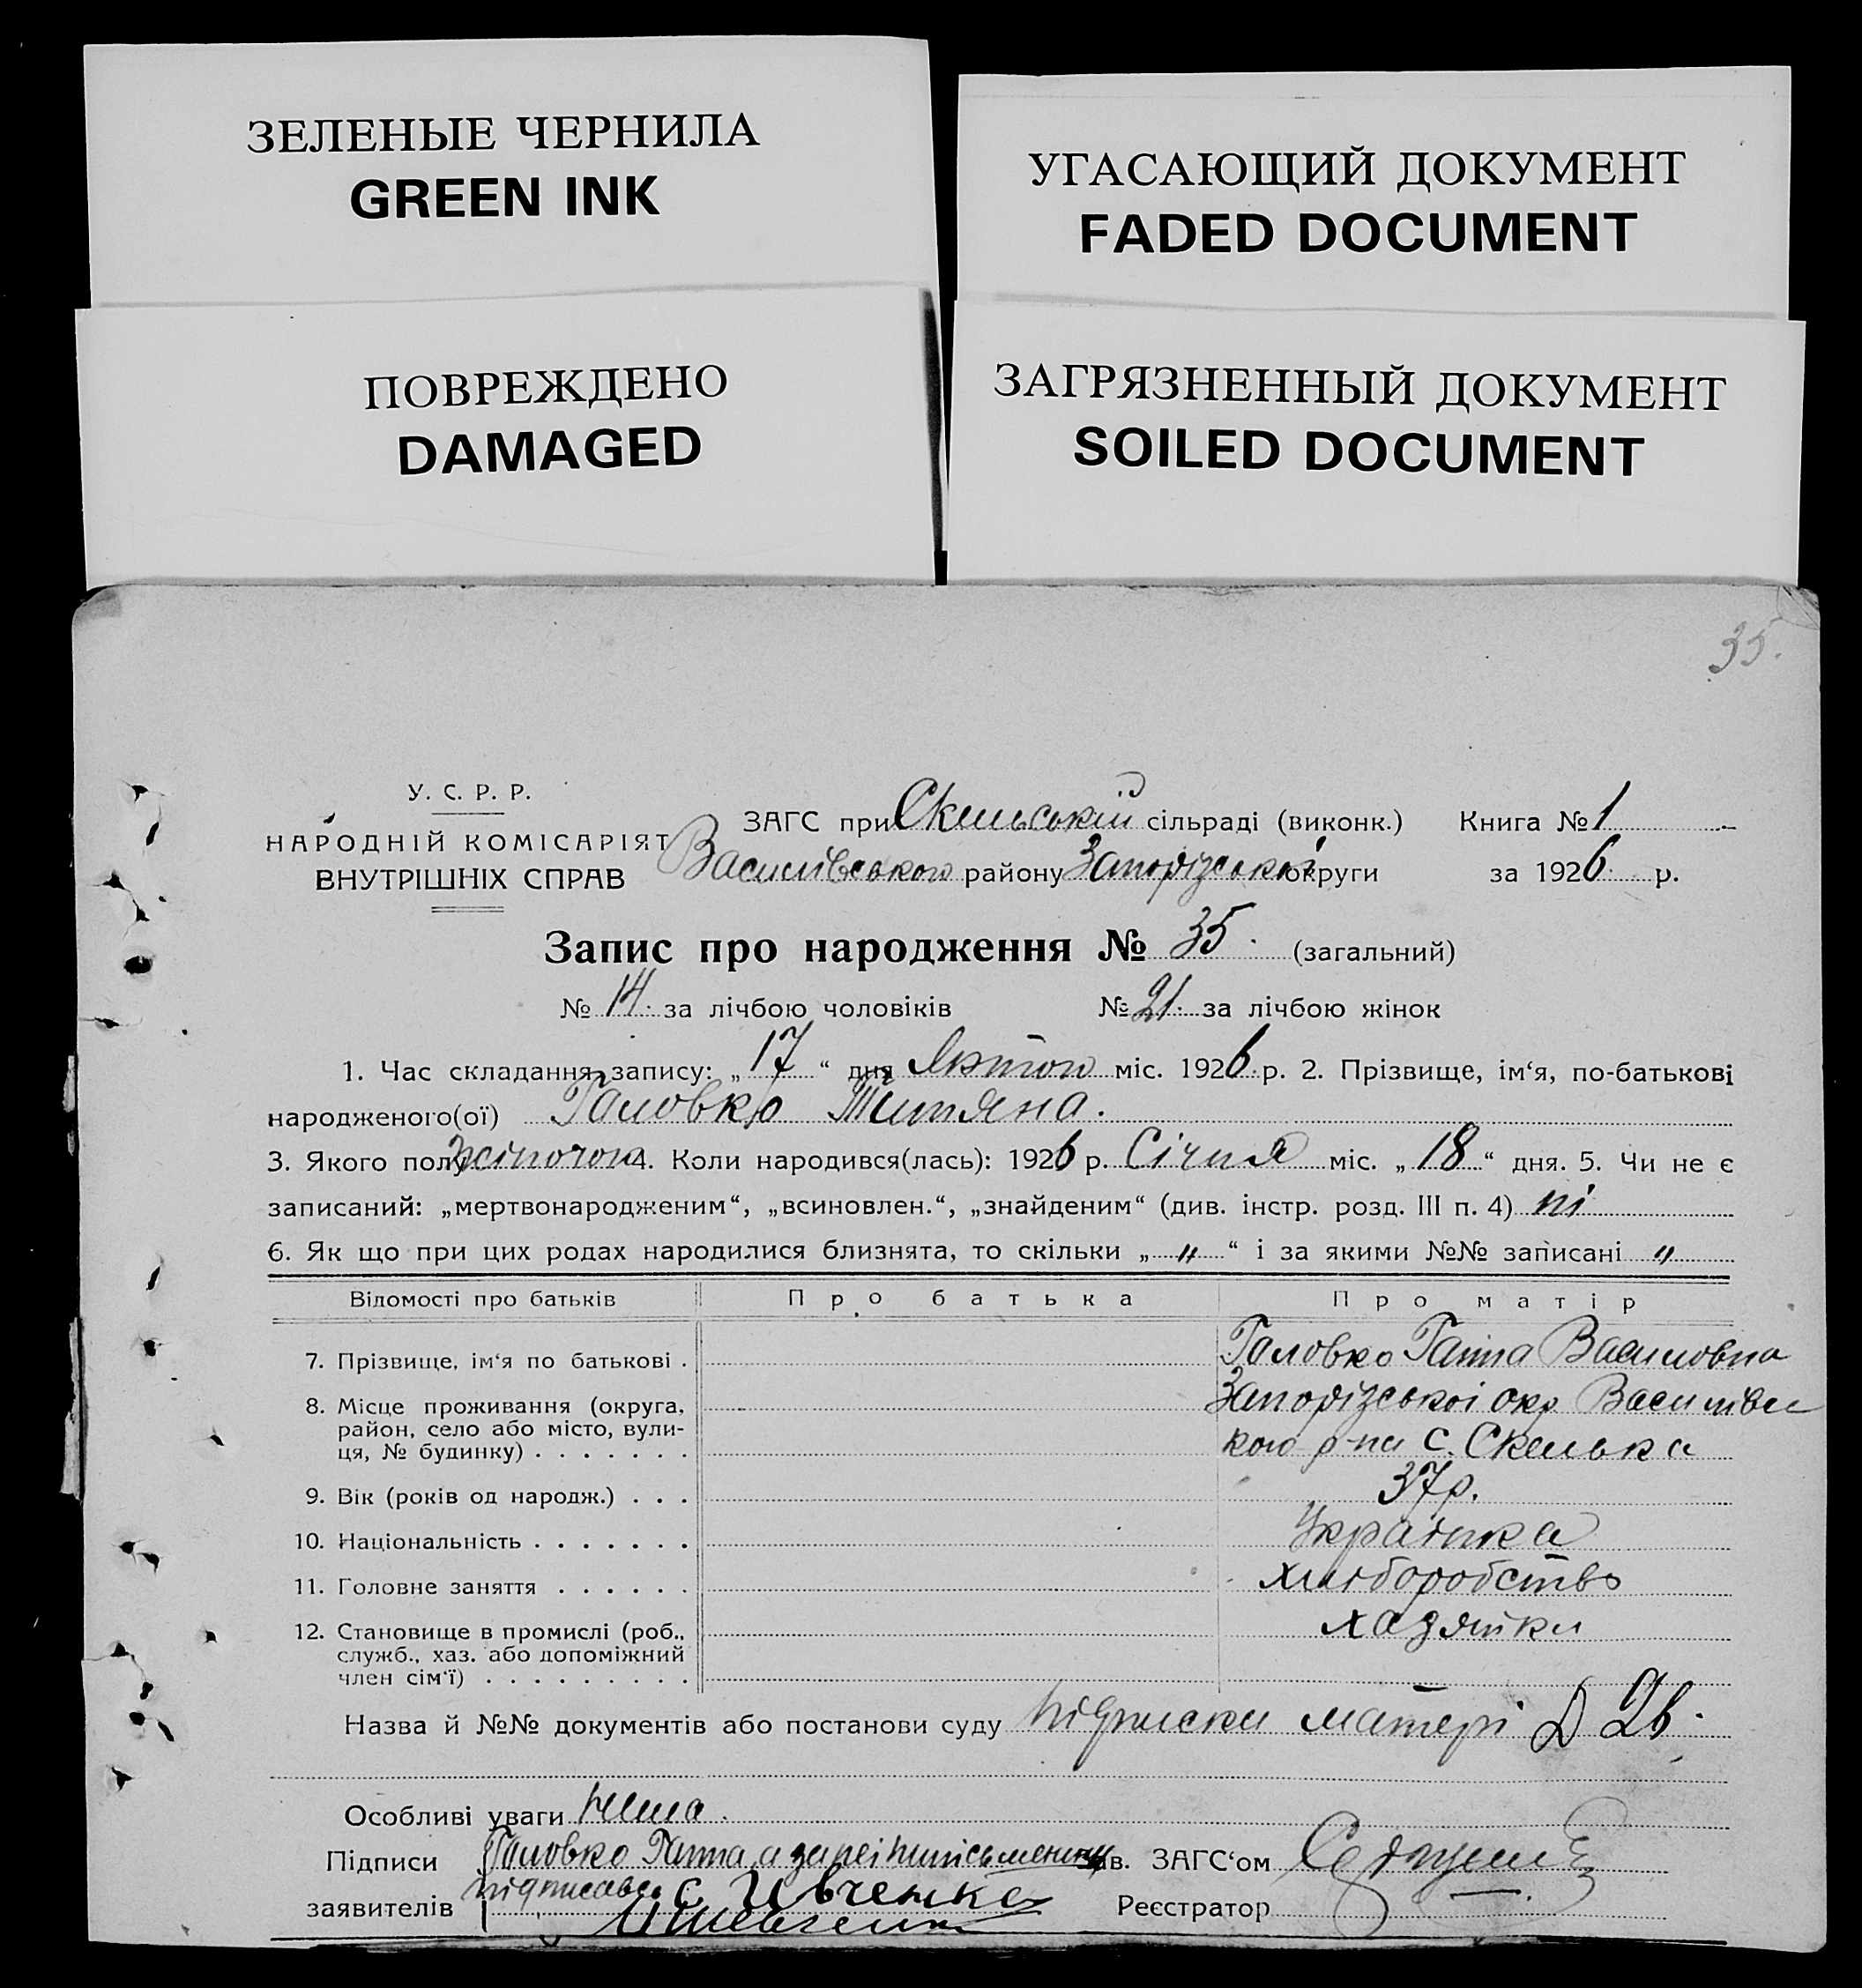 ЗЕЛЕНЫЕ ЧЕРНИЛА
GREEN INK
УГАСАЮЩИЙ ДОКУМЕНТ
FADED DOCUMENT
ПОВРЕЖДЕНО
DAMAGED
ЗАГРЯЗНЕННЫЙ ДОКУМЕНТ
SOILED DOCUMENT
35.
У. С. Р. Р.
НАРОДНІЙ КОМІСАРІЯТ
ВНУТРІШНІХ СПРАВ
ЗАГС при Скельській сільраді (виконк.) Книга № 1
Василівського району Запорізської округи за 1926 р.
Запис про народження № 35. (загальний)
№ 14. за лічбою чоловіків № 21. за лічбою жінок
1. Час складання запису: „17“ дня Лютого міс. 1926 р. 2. Прізвище, ім‘я, по-батькові
народженого(ої) Головко Титяна.
3. Якого полу жіночого 4. Коли народився(лась): 1926 р. Січня міс. „18“ дня. 5. Чи не є
записаний: „мертвонародженим“, „всиновлен.“, „знайденим“ (див. інстр. розд. III п. 4) ні
6. Як що при цих родах народилися близнята, то скільки „ " “ і за якими №№ записані "
Відомості про батьків Про батька Про матір
7. Прізвище, ім‘я по батькові . Головко Ганна Василовна
8. Місце проживання (округа, Запорізської окр Василівс
район, село або місто, вули-
ця, № будинку) . . . . . . . кого р-на с. Скелька
9. Вік (років од народж.) . . . 37р.
10. Національність . . . . . . . Українка
11. Головне заняття . . . . . . хліборобство
12. Становище в промислі (роб., хазяйка
служб., хаз. або допоміжний
член сім‘ї) . . . . . . . . .
Назва й №№ документів або постанови суду підписки матері Д 26.
Особливі уваги нема.
Підписи Головко Ганна, а за неі неписьменну Зав. ЗАГС‘ом
заявителів підписався С. Ивченко Реєстратор